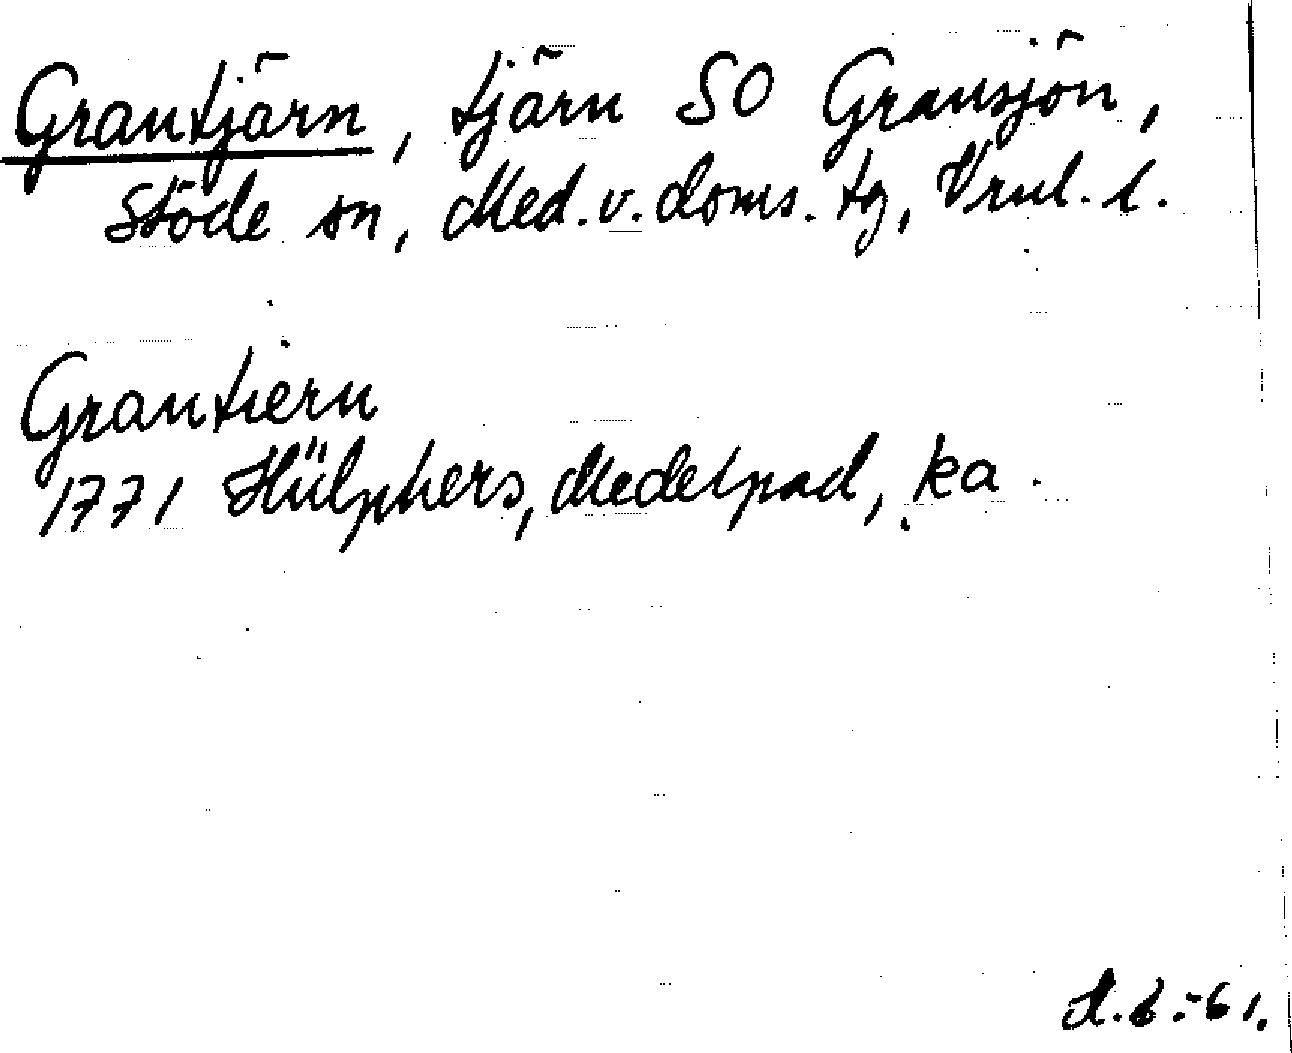 Grantjärn, tjärn SO Gransjön,
Stöde sn, Med. v. doms. tg, Vrnl. l.
Grantiern
1771 Hülphers, Medelpad, ka.